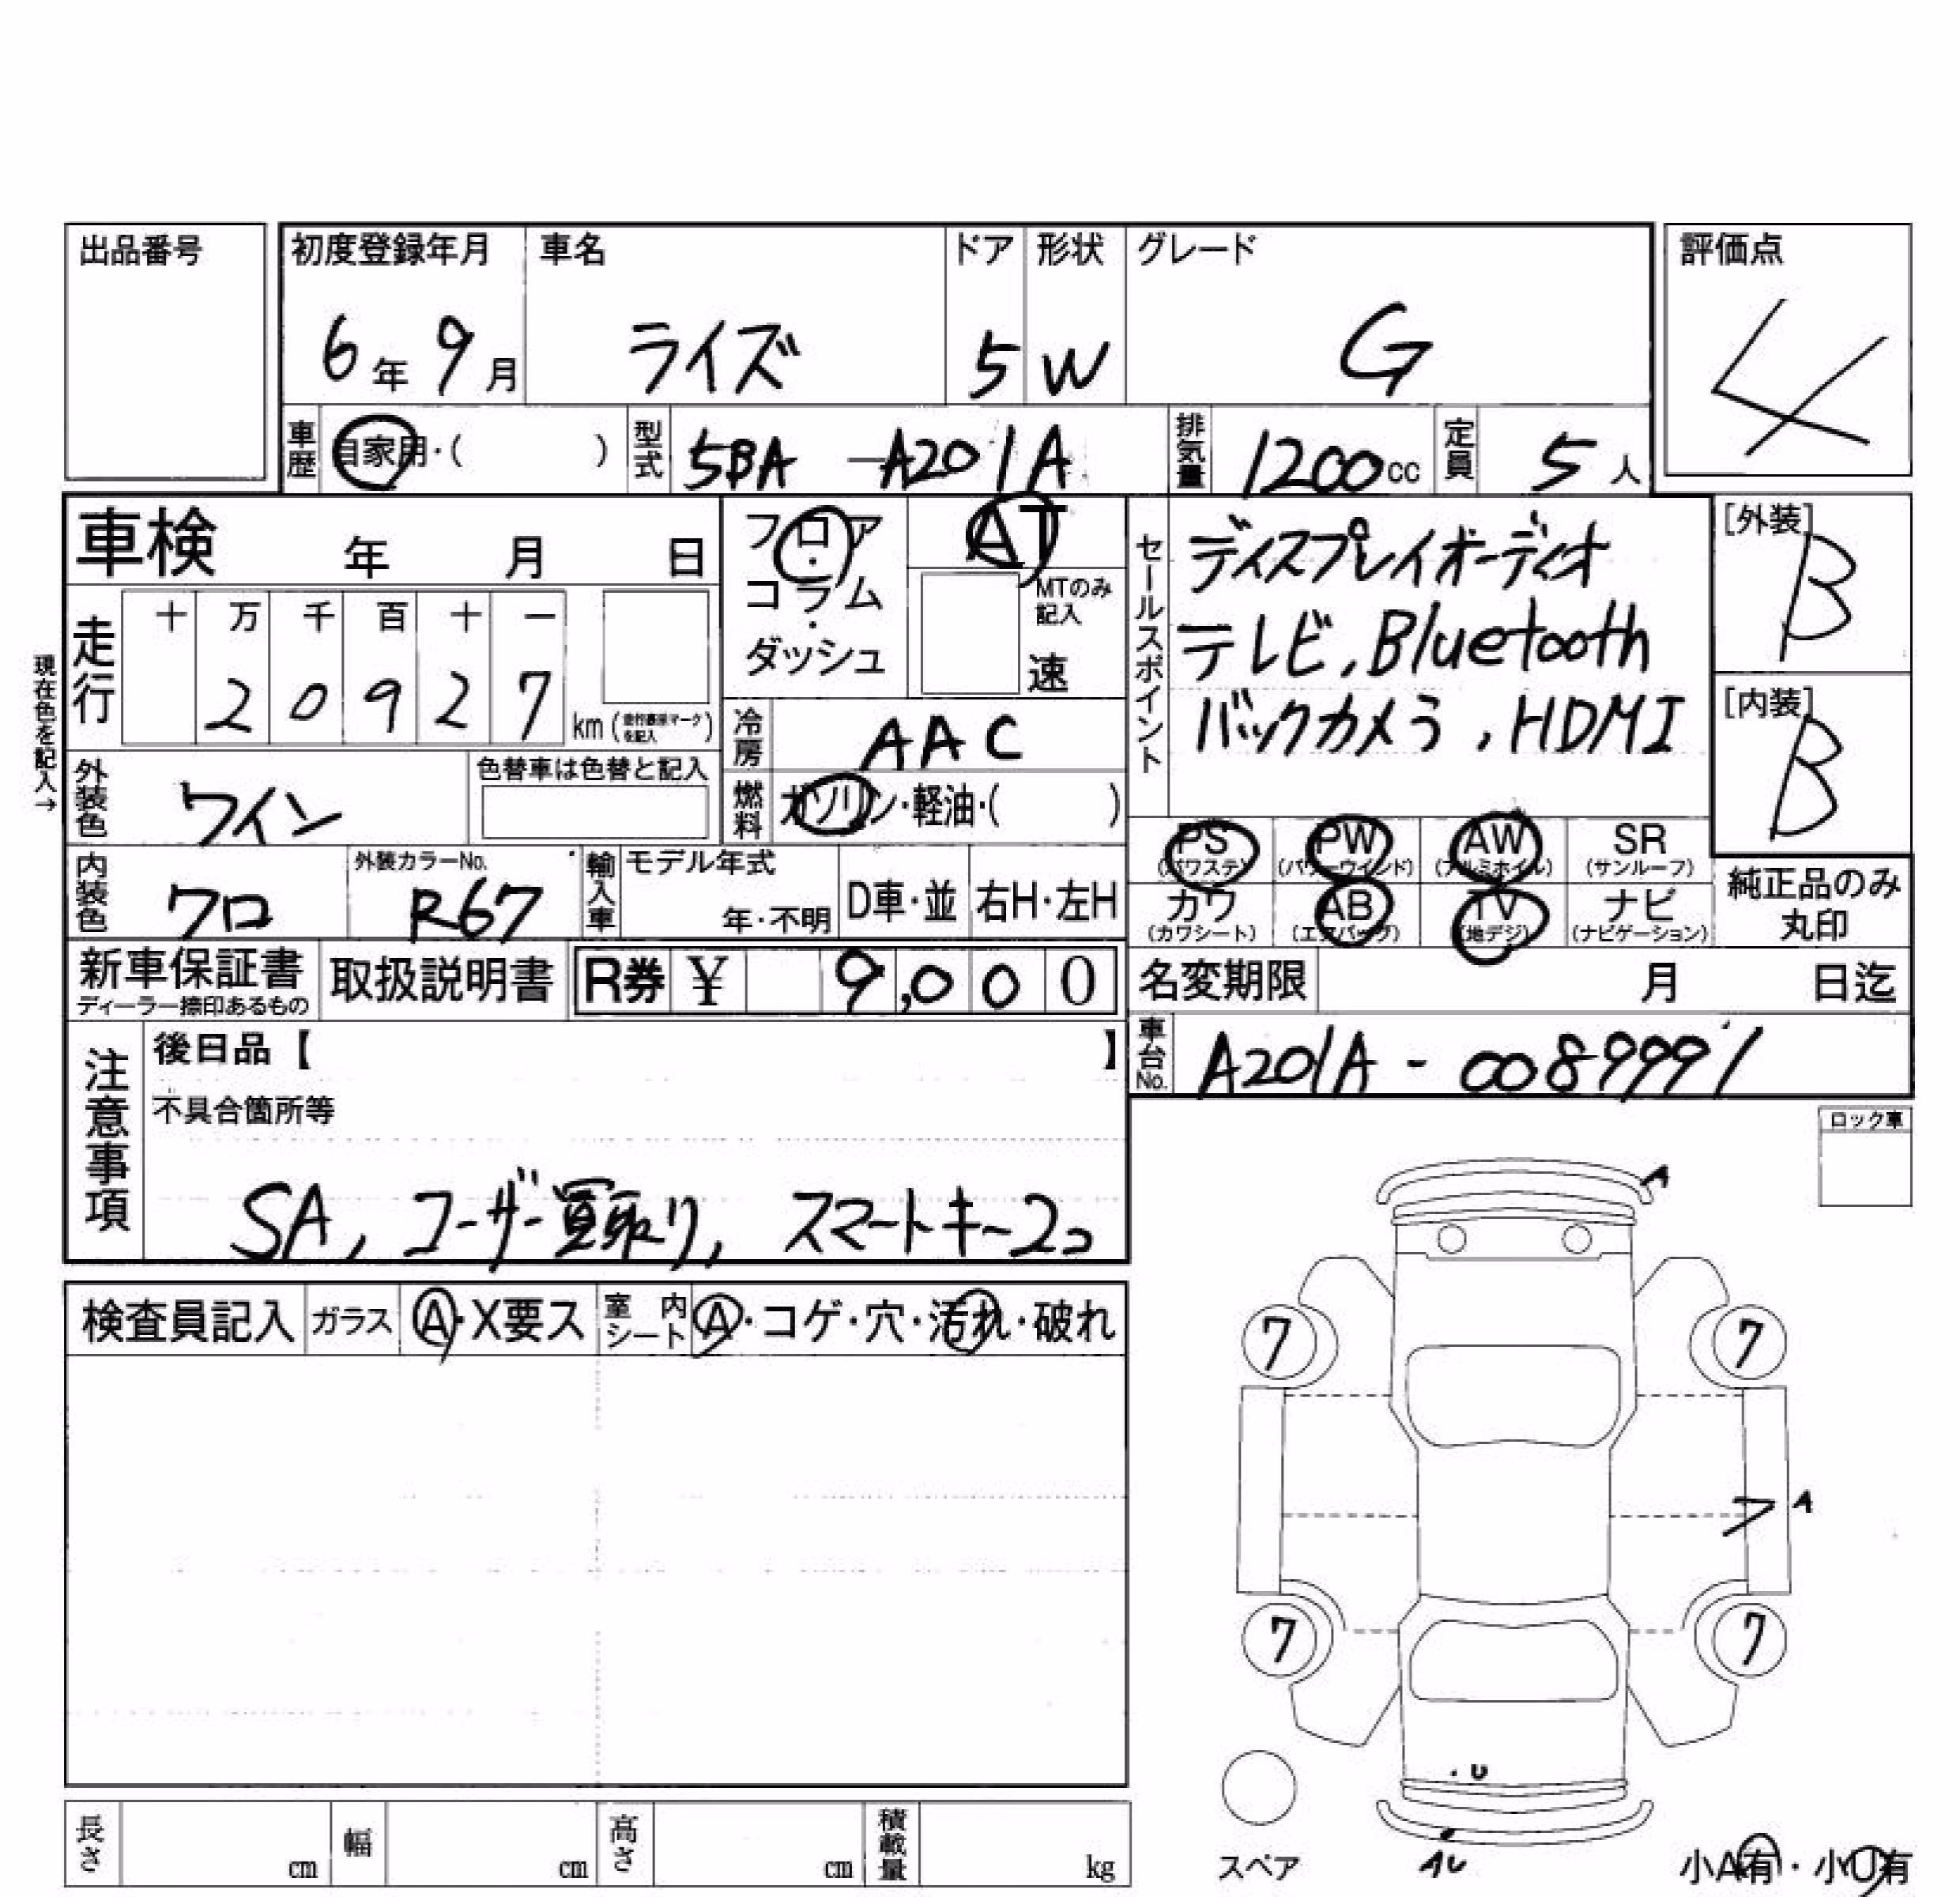 出品番号
初度登録年月 車名 ドア 形状 グレード 評価点
6年 9月 ライズ 5 W G 4
車歴 自家用・( ) 型式 5BA -A201A 排気量 1200cc 定員 5人
車検 年 月 日
フロア・コラム・ダッシュ
AT
MTのみ記入
速
セールスポイント
ディスプレイオーディオ
テレビ,Bluetooth
バックカメラ,HDMI
[外装]
B
[内装]
B
現在色を記入→
走行 十 万 千 百 十 一
2 0 9 2 7 km
冷房 AAC
燃料 ガソリン・軽油・( )
外装色 ワイン 色替車は色替と記入
内装色 クロ 外装カラーNo. R67 輸入車 モデル年式 年・不明 D車・並 右H・左H
PS (パワステ) PW (パワーウインド) AW (アルミホイル) SR (サンルーフ)
カワ (カワシート) AB (エアバッグ) TV (地デジ) ナビ (ナビゲーション)
純正品のみ
丸印
新車保証書 ディーラー捺印あるもの 取扱説明書 R券 ¥ 9,000
名変期限 月 日迄
車台No. A201A - 0089991
注意事項
後日品【 】
不具合箇所等
SA, ユーザー買取り, スマートキー2コ
ロック車
検査員記入 ガラス A・X要ス 室内シート A・コゲ・穴・汚れ・破れ
A
7 7
A
7 7
・U
AU
スペア
小A有・小U有
長さ cm 幅 cm 高さ cm 積載量 kg